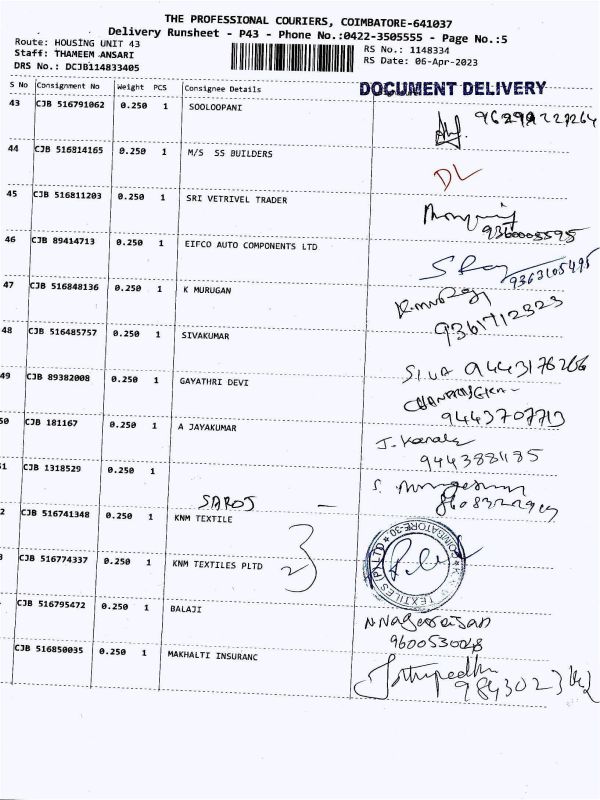 THE PROFESSIONAL COURIERS, COIMBATORE-641037
Delivery Runsheet - P43 - Phone No.:0422-3505555 - Page No.:5
Route: HOUSING UNIT 43
Staff: THAMEEM ANSARI
DRS No.: DCJB114833405
RS No.: 1148334
RS Date: 06-Apr-2023
S No Consignment No Weight PCS Consignee Details
DOCUMENT DELIVERY
43 CJB 516791062 0.250 1 SOOLOOPANI
44 CJB 516814165 0.250 1 M/S SS BUILDERS
DL
45 CJB 516811203 0.250 1 SRI VETRIVEL TRADER
9360005595
46 CJB 89414713 0.250 1 EIFCO AUTO COMPONENTS LTD
9363105495
47 CJB 516848136 0.250 1 K MURUGAN
9361712323
48 CJB 516485757 0.250 1 SIVAKUMAR
SIVA 9443176266
49 CJB 89382008 0.250 1 GAYATHRI DEVI
9443707713
50 CJB 181167 0.250 1 A JAYAKUMAR
J. Kamala
9443881185
51 CJB 1318529 0.250 1
SAROJ
2 CJB 516741348 0.250 1 KNM TEXTILE
CJB 516774337 0.250 1 KNM TEXTILES PLTD
COIMBATORE-30
CJB 516795472 0.250 1 BALAJI
N Nagarajan
9600530048
CJB 516850035 0.250 1 MAKHALTI INSURANC